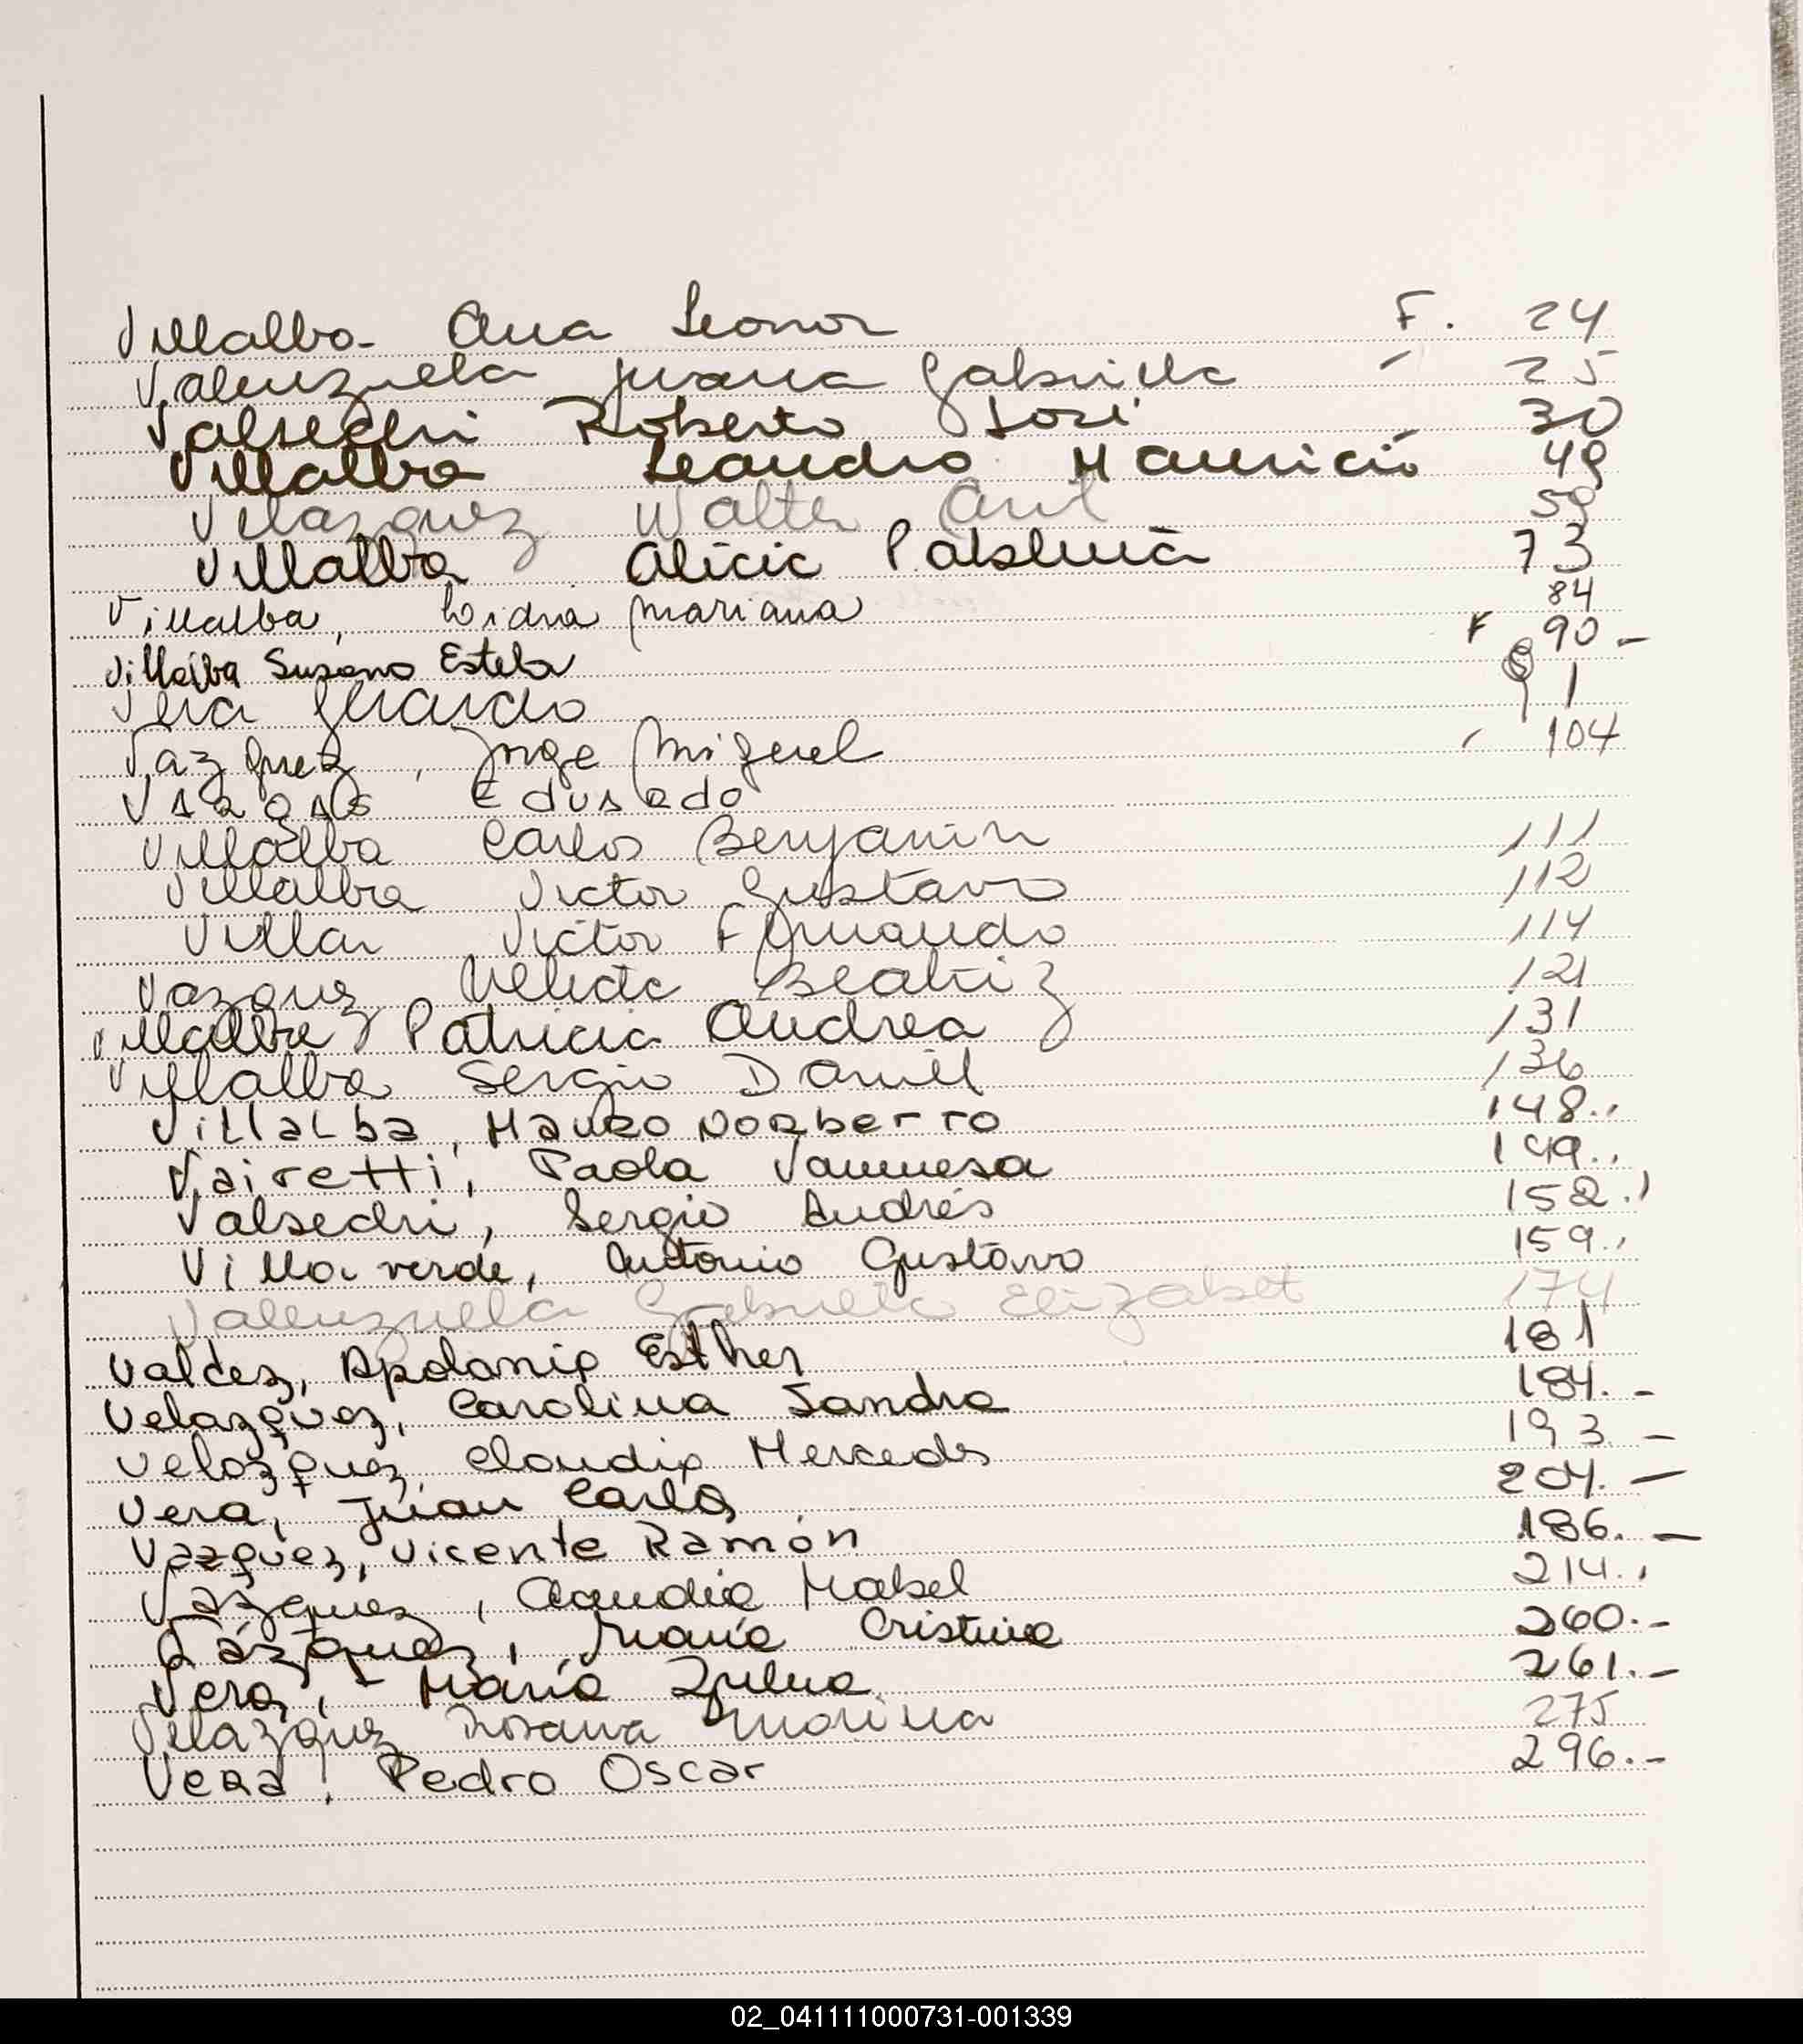 Villalba Ana Leonor F. 24
Valenzuela Juana Gabriela 25
Valsechi Roberto José 30
Villalba Leandro Mauricio 49
Velazquez Walter Ariel 59
Villalba Alicia 73
Villalba, Lidia Mariana 84
Villalba Susana Estela F 90 -
Vera Gerardo 91
Vazquez, Jorge Miguel 104
Eduardo
Villalba Carlos Benjamin 111
Villalba Victor Gustavo 112
Villar Victor Fernando 114
Vazquez Beatriz 121
Villalba Patricia Andrea 131
Villalba Sergio Daniel 136
Villalba, Mauro Norberto 148.,
Vairetti, Paola Vannesa 149.,
Valsechi, Sergio Andrés 152.,
Villa verde, Antonio Gustavo 159.,
Valenzuela Gabriela Elizabet 174
Valdez, Apolonia Esther 181
Velazquez, Carolina Sandra 184. -
Velazquez Claudia Mercedes 193 -
Vera, Juan Carlos 204. -
Vazquez, Vicente Ramón 186. -
Vazquez, Claudia Mabel 214.,
Vázquez, María Cristina 260. -
Vera, María Zulma 261. -
Velazquez Rosana Marina 275
Vera, Pedro Oscar 296. -
02_041111000731-001339